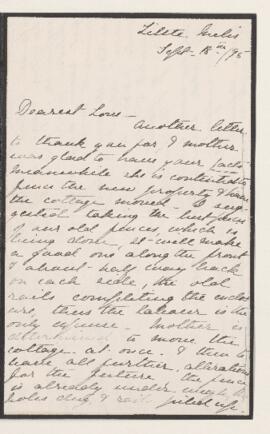 Little Metis
Sept. 18th/95
Dearest Lou -
Another letter
to thank you for & mother
was glad to have your
meanwhile she is contented to
fence the new property & have
the cottage moved. I sug-
gested taking the best posts
of our old fence, which is
being done, it will make
a good one along the front
& about half way back
on each side, the old
rails completing the enclos
ure, thus the labour is the
only expense. Mother is
determined to move the
cottage at once. & then to
leave all further alterations
for the future. The fence
is already under weigh, the
holes dug & rails piled up.